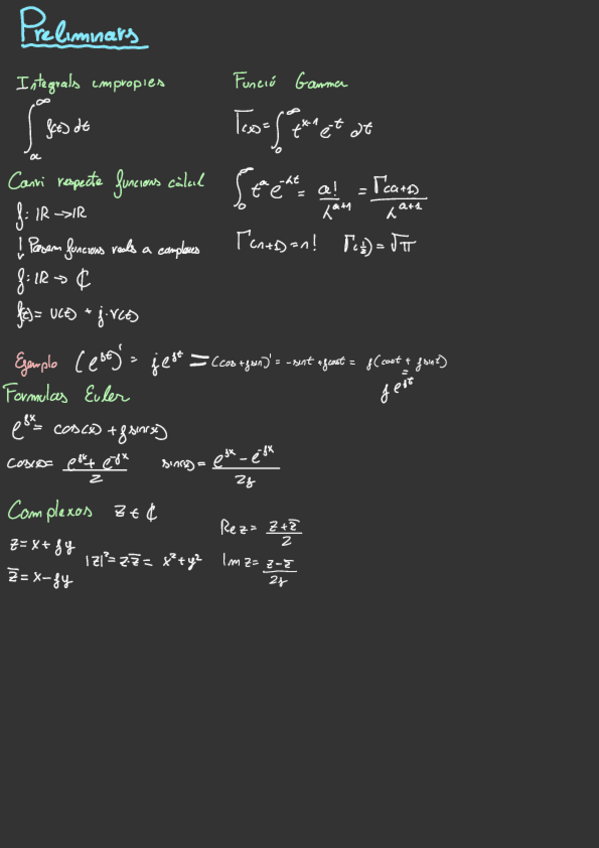 Preliminars
Integrals impropies
∫_a^∞ f(t) dt
Canvi respecte funcions càlcul
f: IR → IR
↓ Passem funcions reals a complexes
f: IR → ℂ
f(t) = U(t) + j·V(t)
Funció Gamma
Γ(x) = ∫_0^∞ t^{x-1} e^{-t} dt
∫_0^∞ t^a e^{-λt} = a!/λ^{a+1} = Γ(a+1)/λ^{a+1}
Γ(n+1) = n! Γ(1/2) = √π
Ejemplo (e^{jt})' = j e^{jt} = (cos + j sin)' = -sint + jcost = j(cost + jsint)
= j e^{jt}
Formulas Euler
e^{jx} = cos(x) + j sin(x)
cos(x) = (e^{jx} + e^{-jx})/2 sin(x) = (e^{jx} - e^{-jx})/2j
Complexos z ∈ ℂ
z = x + jy
z̄ = x - jy
|z|² = z·z̄ = x² + y²
Re z = (z + z̄)/2
Im z = (z - z̄)/2j